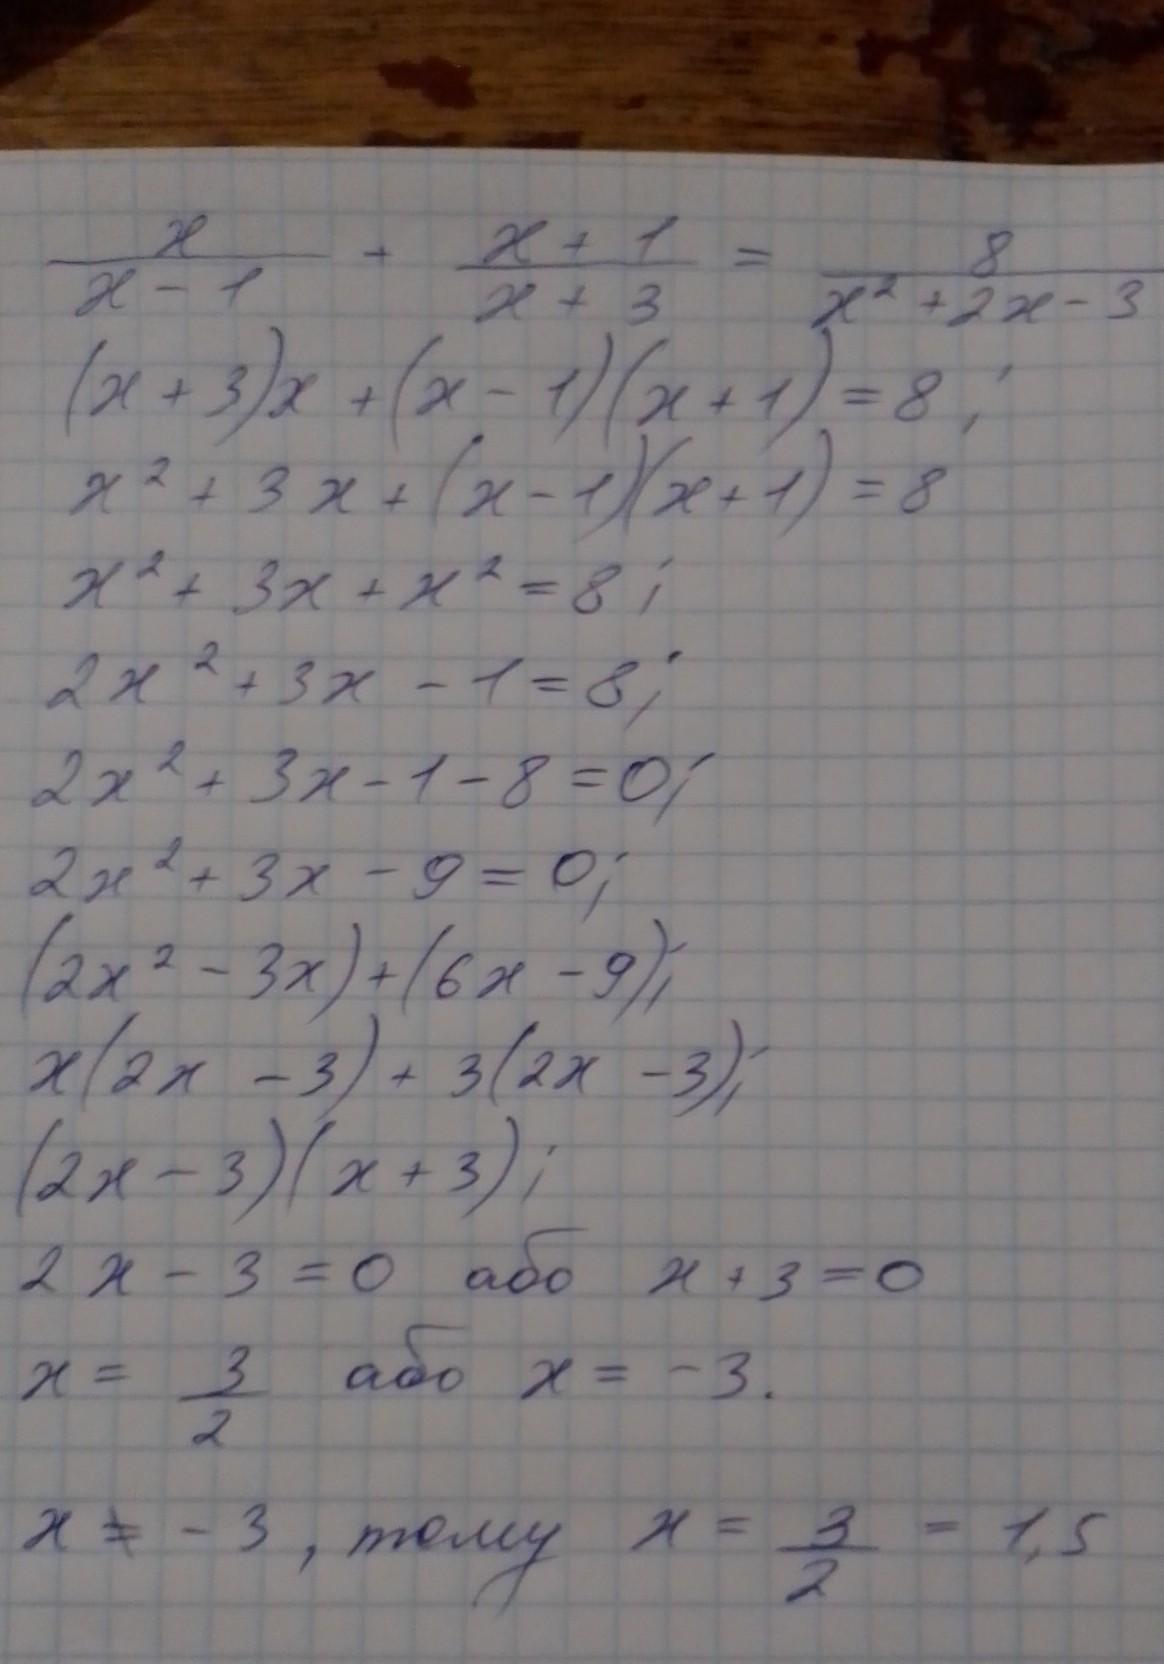 x/(x - 1) + (x + 1)/(x + 3) = 8/(x² + 2x - 3)
(x + 3)x + (x - 1)(x + 1) = 8;
x² + 3x + (x - 1)(x + 1) = 8
x² + 3x + x² = 8;
2x² + 3x - 1 = 8;
2x² + 3x - 1 - 8 = 0;
2x² + 3x - 9 = 0;
(2x² - 3x) + (6x - 9);
x(2x - 3) + 3(2x - 3);
(2x - 3)(x + 3);
2x - 3 = 0 або x + 3 = 0
x = 3/2 або x = -3.
x ≠ -3, тому x = 3/2 = 1,5